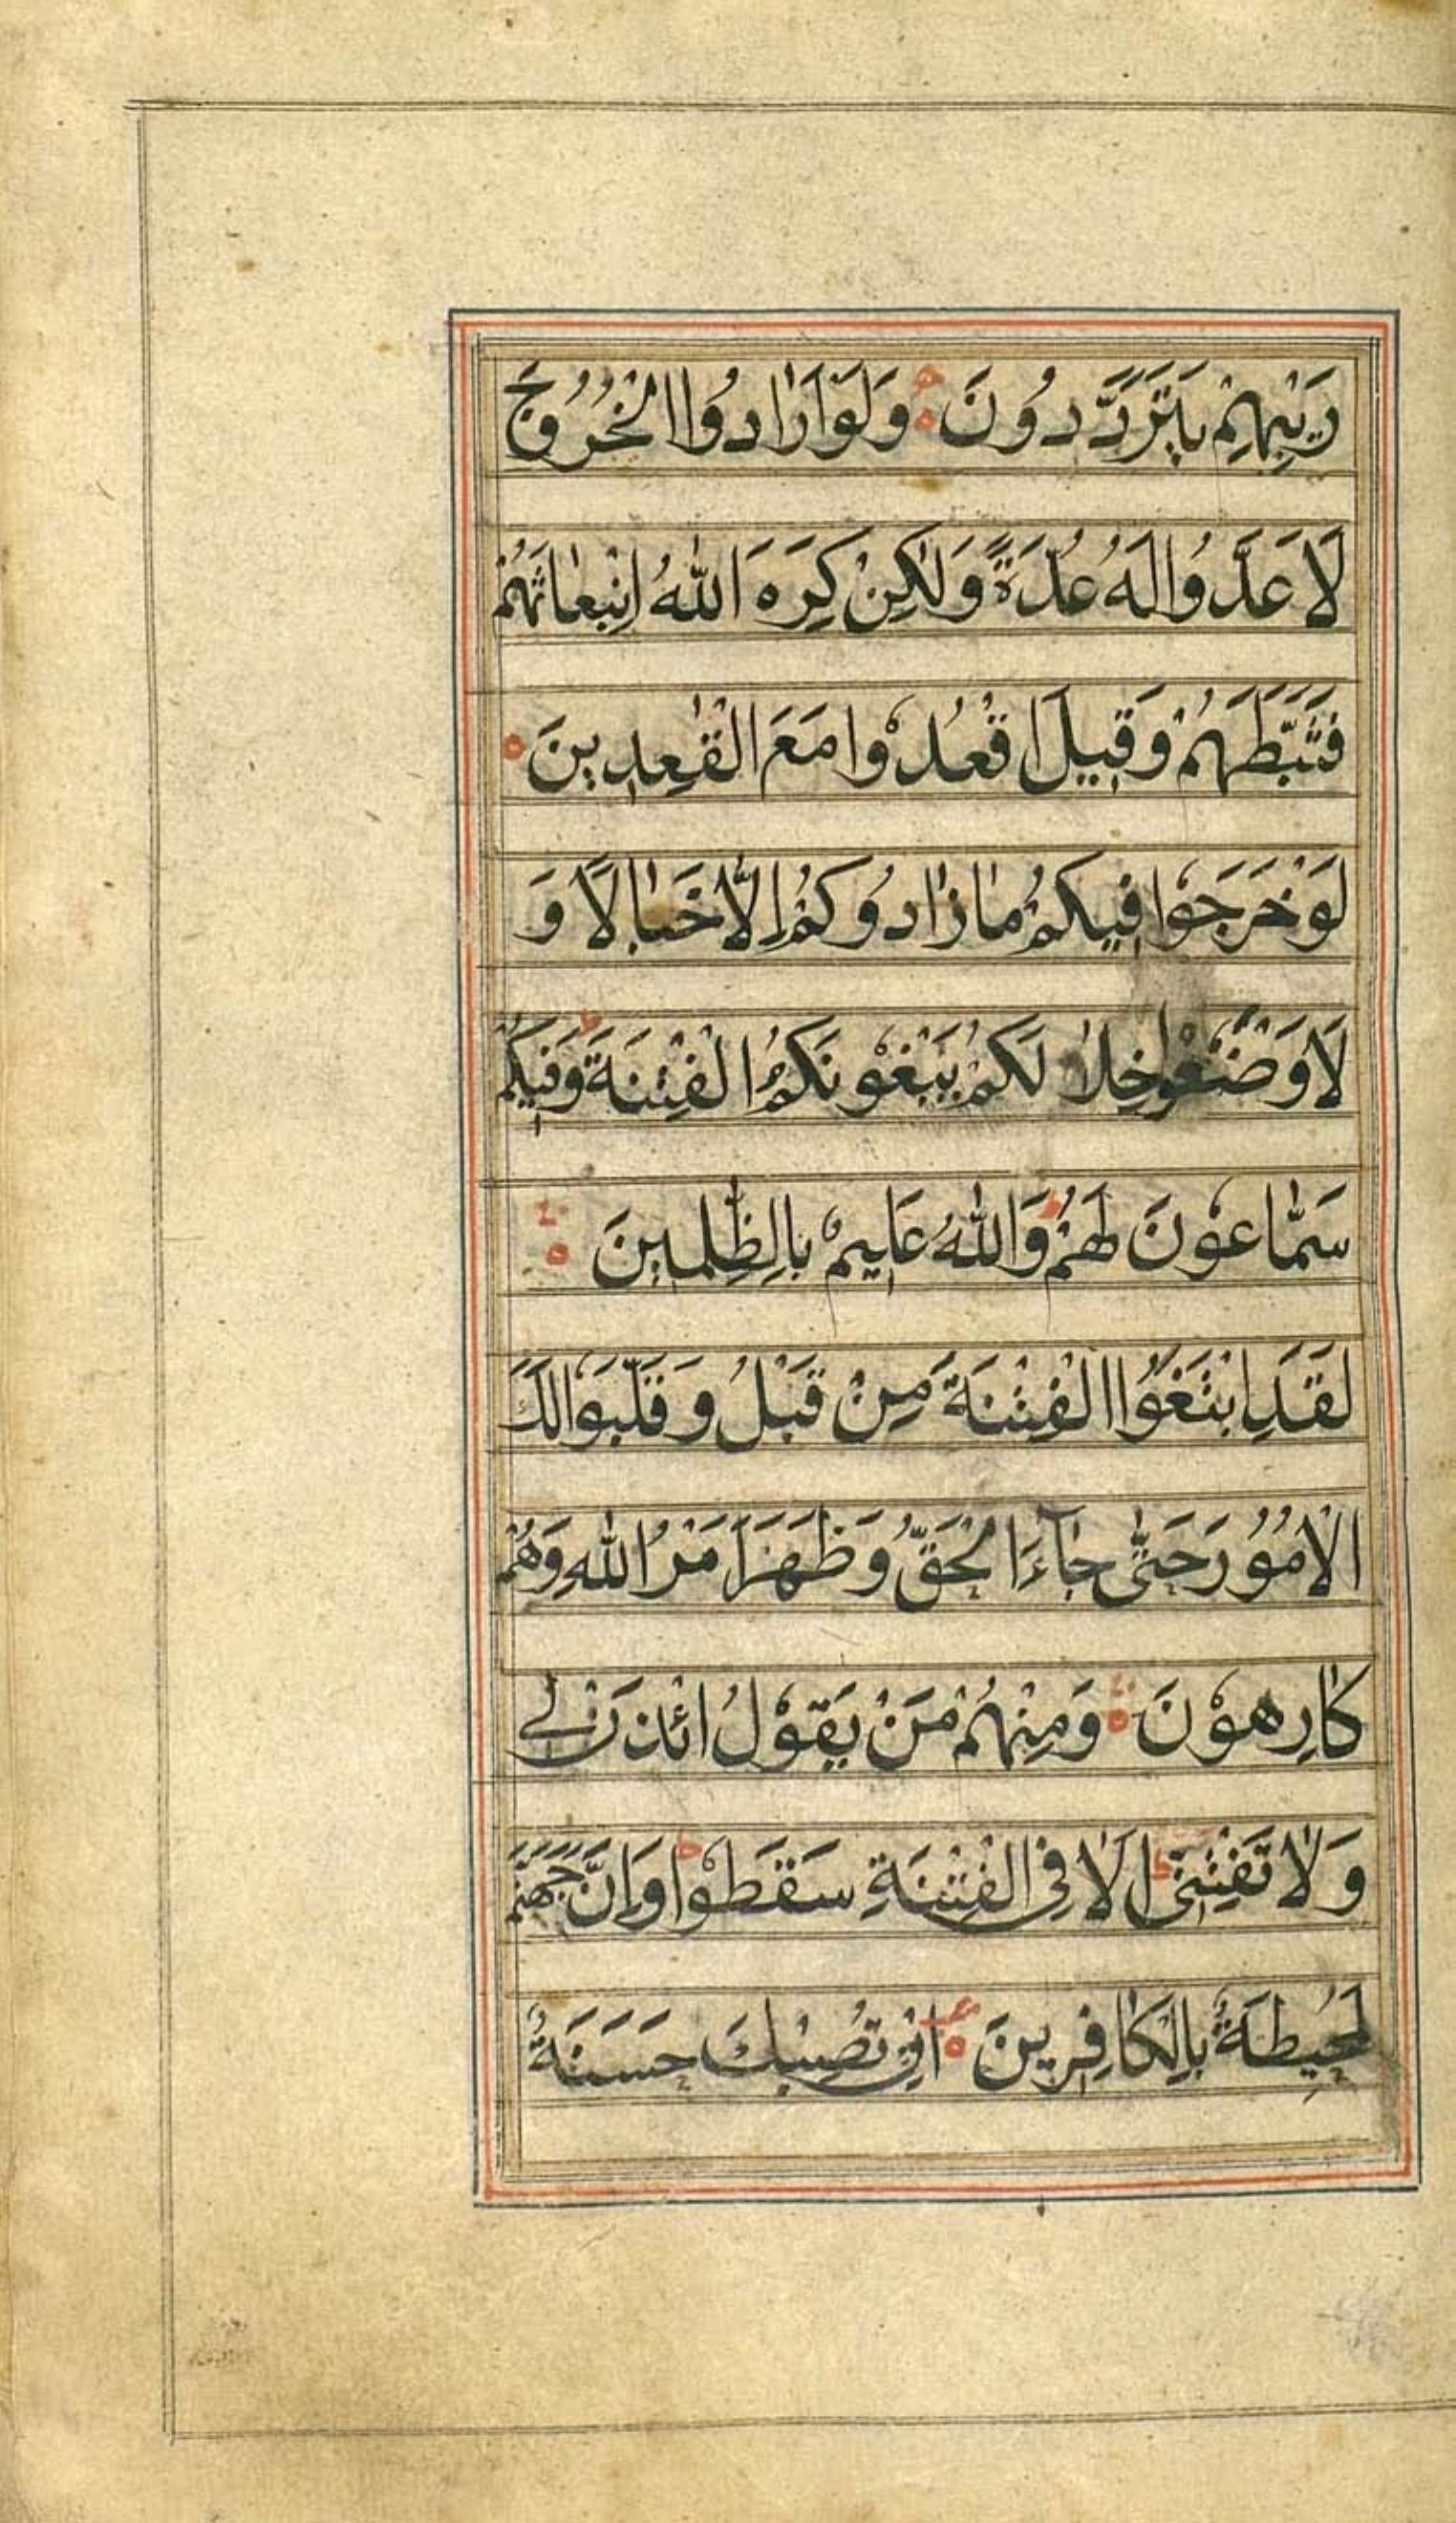 رَيْبِهِمْ يَتَرَدَّدُونَ ۝ وَلَوْ اَرَادُوا الْخُرُوجَ
لَاَعَدُّوا لَهُ عُدَّةً وَلٰكِنْ كَرِهَ اللّٰهُ انْبِعَاثَهُمْ
فَثَبَّطَهُمْ وَقِيلَ اقْعُدُوْا مَعَ الْقٰعِدِينَ ۝
لَوْ خَرَجَوْا فِيكُمْ مَا زَادُوكُمْ اِلَّا خَبَالًا وَ
لَا وَضَعُوْا خِلَا لَكُمْ يَبْغُوْنَكُمُ الْفِتْنَةَ ط وَفِيكُمْ
سَمَّاعُوْنَ لَهُمْ ط وَاللّٰهُ عَلِيمٌ بِالظّٰلِمِينَ ۝
لَقَدِ ابْتَغَوُا الْفِتْنَةَ مِنْ قَبْلُ وَقَلَّبُوْا لَكَ
الْاُمُوُرَ حَتّٰى جَآءَ الْحَقُّ وَظَهَرَ اَمْرُ اللّٰهِ وَهُمْ
كَارِهُوْنَ ۝ وَمِنْهُمْ مَنْ يَقُوْلُ ائْذَنْ لِے
وَلَا تَفْتِنِّى ط اَلَا فِى الْفِتْنَةِ سَقَطُوْا ط وَاِنَّ جَهَنَّمَ
لَمُحِيطَةٌ بِالْكَافِرِينَ ۝ اِنْ تُصِبْكَ حَسَنَةٌ